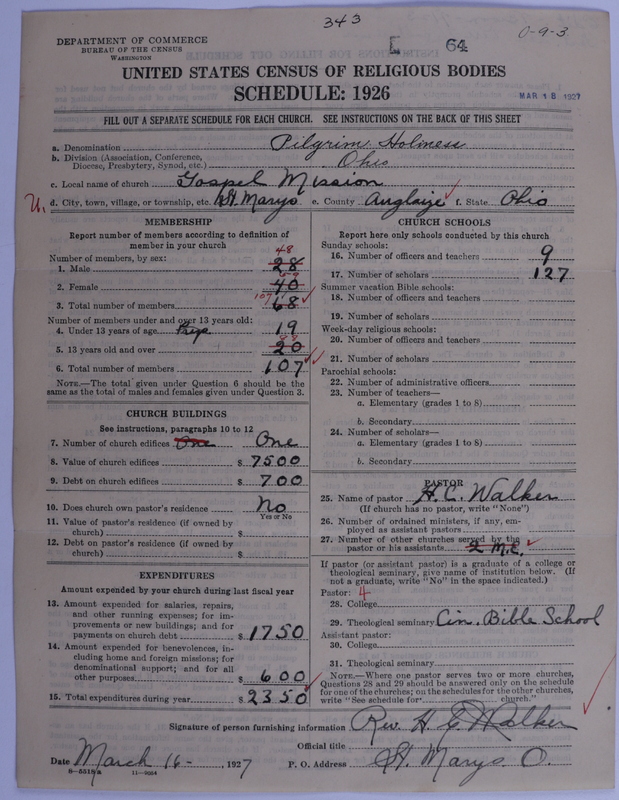 343
0-9-3
DEPARTMENT OF COMMERCE
BUREAU OF THE CENSUS
WASHINGTON
E 64
UNITED STATES CENSUS OF RELIGIOUS BODIES
SCHEDULE: 1926
MAR 18 1927
FILL OUT A SEPARATE SCHEDULE FOR EACH CHURCH. SEE INSTRUCTIONS ON THE BACK OF THIS SHEET
a. Denomination Pilgrim Holiness
b. Division (Association, Conference, Diocese, Presbytery, Synod, etc.) Ohio
c. Local name of church Gospel Mission
U. d. City, town, village, or township, etc. St. Marys e. County Auglaize f. State Ohio
MEMBERSHIP
Report number of members according to definition of
member in your church
Number of members, by sex:
48
1. Male 28
2. Female 40
3. Total number of members 107 68
Number of members under and over 13 years old:
4. Under 13 years of age 19
5. 13 years old and over 20
6. Total number of members 107
NOTE.—The total given under Question 6 should be the
same as the total of males and females given under Question 3.
CHURCH BUILDINGS
See instructions, paragraphs 10 to 12
7. Number of church edifices One One
8. Value of church edifices $ 7500
9. Debt on church edifices $ 700
10. Does church own pastor's residence No
Yes or No
11. Value of pastor's residence (if owned by
church) $
12. Debt on pastor's residence (if owned by
church) $
EXPENDITURES
Amount expended by your church during last fiscal year
13. Amount expended for salaries, repairs,
and other running expenses; for im-
provements or new buildings; and for
payments on church debt $ 1750
14. Amount expended for benevolences, in-
cluding home and foreign missions; for
denominational support; and for all
other purposes $ 600
15. Total expenditures during year $ 2350
CHURCH SCHOOLS
Report here only schools conducted by this church
Sunday schools:
16. Number of officers and teachers 9
17. Number of scholars 127
Summer vacation Bible schools:
18. Number of officers and teachers
19. Number of scholars
Week-day religious schools:
20. Number of officers and teachers
21. Number of scholars
Parochial schools:
22. Number of administrative officers
23. Number of teachers—
a. Elementary (grades 1 to 8)
b. Secondary
24. Number of scholars—
a. Elementary (grades 1 to 8)
b. Secondary
PASTOR
25. Name of pastor H. C. Walker
(If church has no pastor, write "None")
26. Number of ordained ministers, if any, em-
ployed as assistant pastors
27. Number of other churches served by the
pastor or his assistants
If pastor (or assistant pastor) is a graduate of a college or
theological seminary, give name of institution below. (If
not a graduate, write "No" in the space indicated.)
Pastor: 4
28. College
29. Theological seminary Cin. Bible School
Assistant pastor:
30. College
31. Theological seminary
NOTE.—Where one pastor serves two or more churches,
Questions 28 and 29 should be answered only on the schedule
for one of the churches; on the schedules for the other churches,
write "See schedule for church."
Signature of person furnishing information Rev. H. C. Walker
Official title
Date March 16 - , 1927 P. O. Address St. Marys O.
8-5518a 11-9054